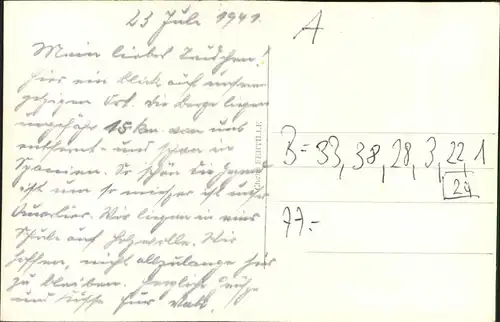 23 Juli 1941.
Mein liebes
hier ein Blick auf unseren
jetzigen Ort. Die Berge liegen
ungefähr 15 km von uns
entfernt - und schon in
Spanien. So schön die
ist um so ist unser
Quartier. Wir liegen in eine
Schule auf Holzwolle. Wir
hoffen, nicht allzulange hier
zu bleiben. Herzliche Grüße
und Küsse für
A
B = 33, 38, 28, 3, 22, 1
24
77.-